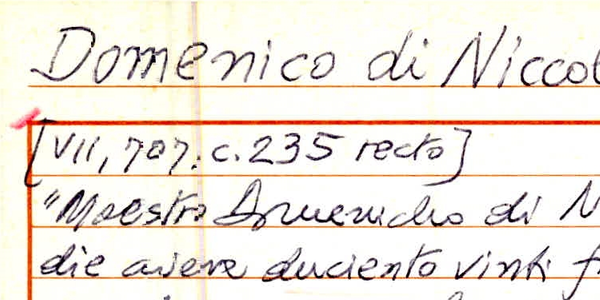 Domenico di Niccol
[VII, 707. c. 235 recto]
"Maestro Domenicho di N
die avere duciento vinti f